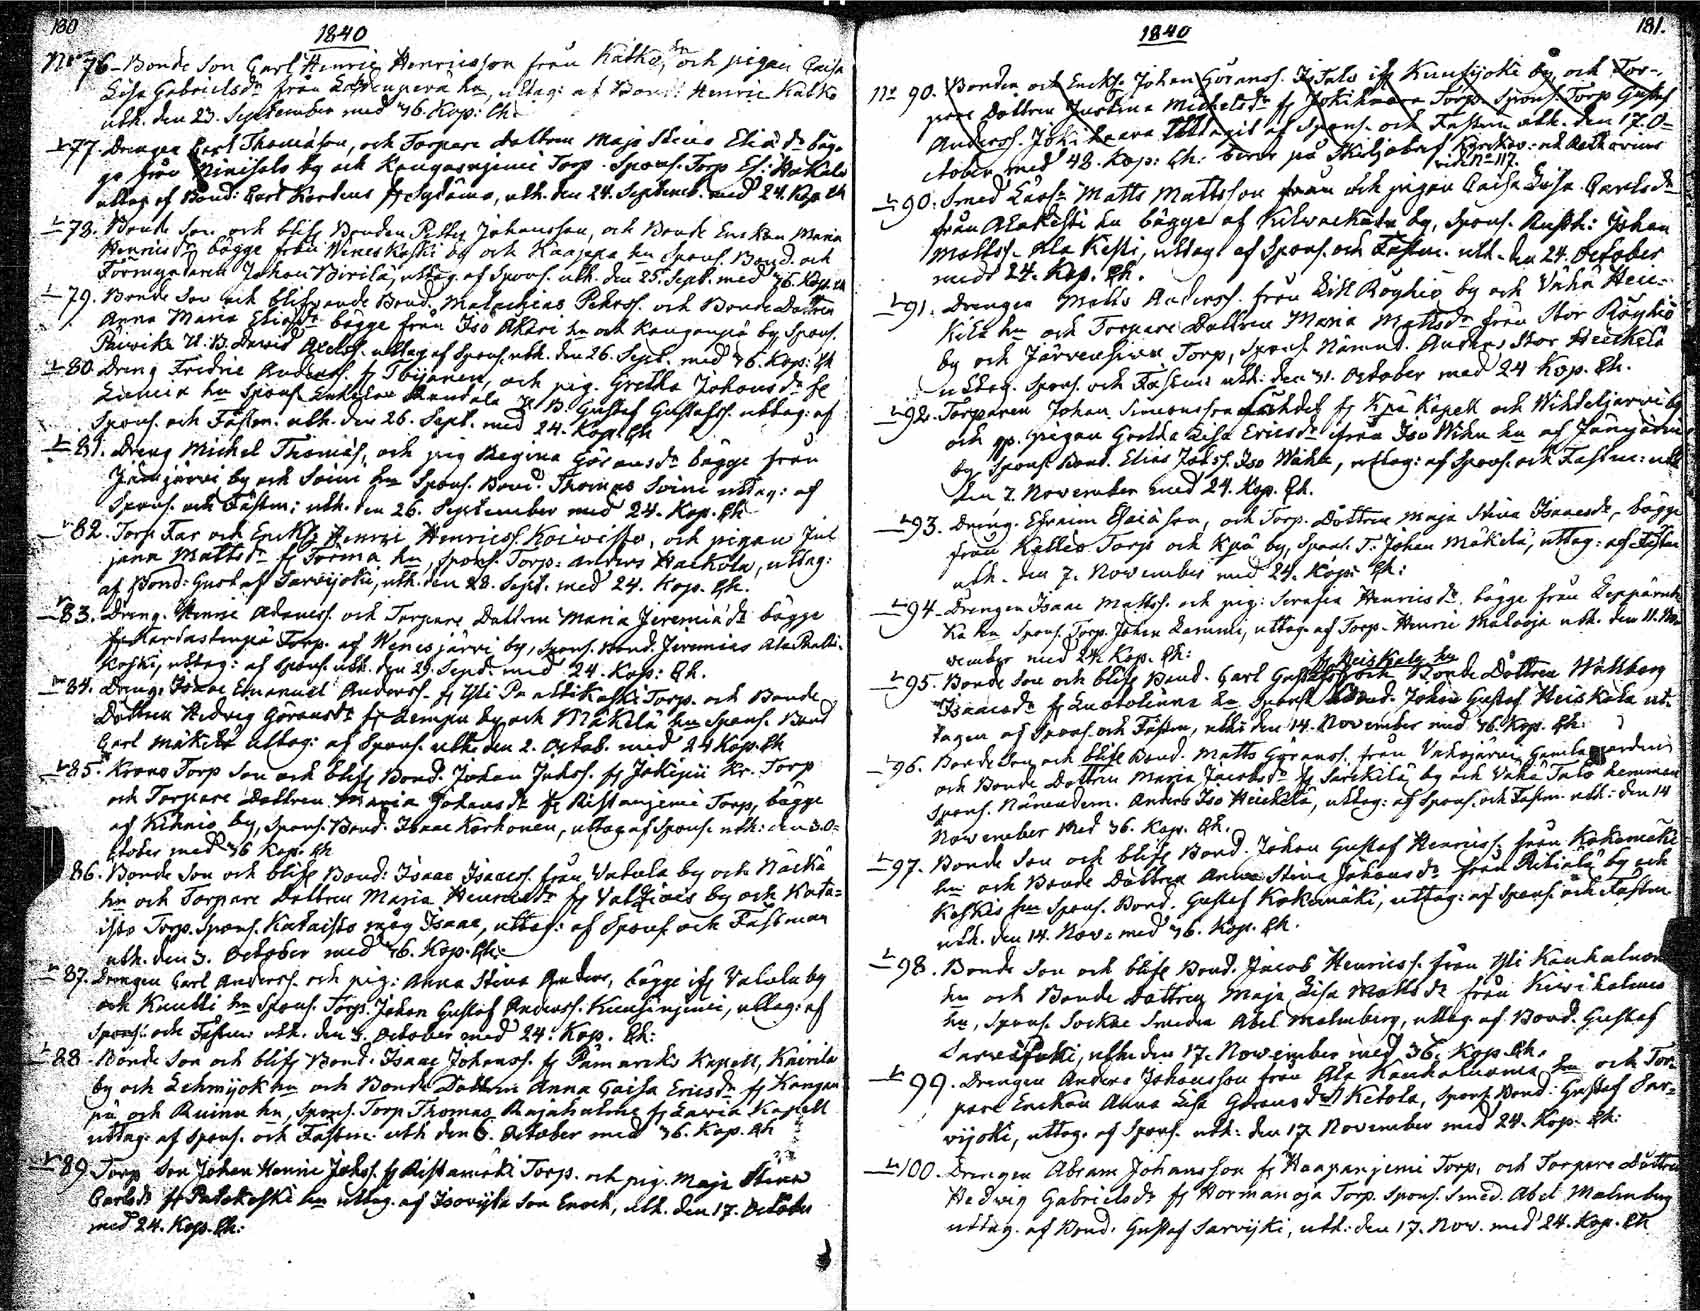 180
1840
No 76 Bonde Son Carl Henric Henricsson från Kätkö hn och pigan Caisa
Lisa Gabrielsdr från hn, uttag: af Bond: Henric Kätkö
utk. den 23. September med 36. Kop: Ch.
77. Drengen Carl Thomasson, och Torpare dottren Maja Stina Eliædr bäg-
ge från Niinisalo by och Kangasnjemi Torp. Spons. Torp El: Hakala
uttag af Bond: Carl fr Sydänma, utk. den 24. Septemb. med 24. Kop Ch
78. Bonde Son och blifv. Bonden Petter Johansson, och Bonde Enckan Maria
Henricsdr bägge från Weneskoski by och Kaajapa hn Spons. Bond. och
Förmyndaren Johan Birilä, uttag. af Spons. utk. den 25. Sept. med 36. Kop. Ch
79. Bonde Son och blifvande Bond. Malachias Pehrss. och Bonde Dottren
Anna Maria Eliædr bägge från Iso Äkäri hn och Kangenpä by Spons.
U. B. David uttag af Spons. utk. den 26. Sept. med 36. Kop: Ch
80. Dreng Fridric Anderss. fr Tbijanen, och pig. Gretha Johansdr fr
Liinia hn Spons. Enkelar Rundala U. B. Gustaf Gustafss. uttag: af
Spons. och Fästm. utk. den 26. Sept. med 24. Kop. Ch
81. Dreng Michel Thomæs, och pig Regina Göransdr bägge från
Jämijärvi by och Soini hn Spons. Bond. Thomas Soini uttag: af
Spons. och Fästm: utk. den 26. September med 24. Kop. Ch
82. Torp. Far och Enkl. Henric Henricss. Koiwisto, och pigan Jul
jana Mattsdr fr Torma hn, Spons. Torp: Anders Harkola, uttag:
af Bond: Gustaf Sarvijoki, utk. den 28. Sept. med 24. Kop. Ch.
83. Dreng. Henric Adamss. och Torpare Dottren Maria Jeremiædr bägge
fr Torp. af Wenesjärvi by, Spons. Bond. Jeremias Ala
koski, uttag: af Spons. utk. den 29. Sept. med 24. Kop: Ch.
84. Dreng. Isaac Emanuel Anderss. fr Yli Torp. och Bonde
Dottren Hedvig Göransdr fr Lempa by och Mäkilä hn Spons. Bond
Carl Mäkelä uttag: af Spons. utk. den 2. Octob. med 24 Kop. Ch
85. Krono Torp Son och blifv Bond. Johan Johss. fr Jokipii Kr. Torp
och Torpare Dottren Maria Johansdr fr Ristanjemi Torp, bägge
af Kihniö by, Spons. Bond. Isaac Korhonen, uttag af Spons. utk: den 3. O-
ctober med 36 Kop. Ch
86. Bonde Son och blifv Bond: Isaac Isaacss. från Vatula by och Näckä
hn och Torpare Dottren Maria Henricsdr fr by och Kata-
isto Torp. Spons. Kataisto måg Isaac, uttag: af Spons. och Fästman
utk. den 3. October med 36. Kop. Ch.
87. Drengen Carl Anderss. och pig: Anna Stina Anders, bägge ifr Vatula by
och Knutti hn Spons. Torp. Johan Gustaf Anderss. uttag: af
Spons. och Fästm: utk. den 3. October med 24. Kop. Ch:
88. Bonde Son och blifv Bond. Isaac Johanss. fr Pämarcks Kapell, Kairila
by och Lehmijoki hn och Bonde Dottren Anna Caisa Ericsdr fr Kangen
pä och Ruina hn, Spons. Torp Thomas Rajahalme fr Lavia Kapell
uttag. af Spons. och Fästm. utk den 6. October med 36. Kop. Ch
89. Torp Son Johan Henric Johss. fr Ristamäki Torp. och pig. Maja Stina
Carlsdr fr Palokoski hn uttag. af Isovijsta Son Enoch, utk. den 17. October
med 24. Kop. Ch:
1840
181.
No 90. Bonden och Enckl. Johan Göranss. Iso Talo ifr Kuusijoki by, och Tor-
pare Dottren Justina Michelsdr fr Jokihaara Torp. Spons. Torp Gustaf
Anderss. Jokihaara Uttagit af Spons. och Fästm utk. den 17. O-
ctober med 48. Kop: Ch: beror på
vid No 117.
90. Smed Matts Mattsson från och pigan Caisa Lisa Carlsdr
från Alakesti hn bägge af by, Spons. Rusth: Johan
Mattss. Ala Kesti, uttag af Spons. och Fästm. utk. den 24. October
med 24. Kop. Ch.
91. Drengen Matts Anderss. från Lill Röyhiö by och Vähä Hei-
kilä hn och Torpare Dottren Maria Mattsdr från Stor Röyhiö
by och Järvensivu Torp, Spons. Nämnd. Anders Stor Heickelä
uttag. Spons. och Fästm: utk: den 31. October med 24 Kop. Ch.
92. Torparen Johan Simonsson fr Kpä Kapell och Wihteljärvi by
och qp. pigan Gretha Lisa Ericsdr ifrån Iso Wihu hn af Jämijärvi
by Spons. Bond. Elias Johss. Iso Wihu, uttag: af Spons. och Fästm: utk
den 7. November med 24. Kop. Ch.
93. Dreng. Efraim Esaiason, och Torp. Dottren Maja Stina Isaacsdr, bägge
från Kallio Torp och Kpä by, Spons. T. Johan Mäkelä, uttag: af Fästm
utk. den 7. November med 24. Kop: Ch:
94. Drengen Isaac Mattss. och pig: Serafia Henricsdr bägge från Leppänen
hn Spons. Torp. Johan Lammi, uttag. af Torp. Henric utk. den 11. No
vember med 24. Kop. Ch:
fr Heiskala hn
95. Bonde Son och blifv Bond. Carl Gustafss och Bonde Dottren Wallborg
Isaacsdr fr Luotolinna hn Spons. Bond. Johan Gustaf Heiskala ut-
tagen af Spons. och Fästm, utk: den 14. November med 36. Kop. Ch:
96. Bonde Son och blifv Bond. Matts Göranss. från Vihojärvi Gamla
och Bonde Dottren Maria Jacobsdr fr Sarckilä by och Vähä Talo hemman
Spons. Nämndem. Anders Iso Heickelä, uttag: af Spons. och Fästm utk: den 14
November med 36. Kop. Ch.
97. Bonde Son och blifv Bond. Johan Gustaf Henricss: från Kokemäki
hn och Bonde Dottren Anna Stina Johansdr från by och
Koskis hn Spons. Bond. Gustaf Kokemäki, uttag: af Spons. och Fästm
utk. den 14. Nov: med 36. Kop. Ch.
98. Bonde Son och blifv Bond. Jacob Henricss. från Yli Kauhaluoma
hn och Bonde Dottren Maja Lisa Mattsdr från Kivikaluma
hn, Spons. Sockne Smeden Abel Malmberg, uttag. af Bond. Gustaf
Sarvijoki, utk: den 17. November med 36. Kop. Ch.
99. Drengen Anders Johansson från Ala Kauhaluoma hn och Tor-
pare Enckan Anna Lisa Göransdr Ketola, Spons. Bond: Gustaf Sar-
vijoki, uttag. af Spons. utk: den 17. November med 24. Kop. Ch:
100. Drengen Abram Johansson fr Haapanjemi Torp, och Torpare Dottren
Hedvig Gabrielsdr fr Hormanoja Torp. Spons. Smed. Abel Malmberg
uttag. af Bond: Gustaf Sarvijki, utk: den 17. Nov. med 24. Kop. Ch